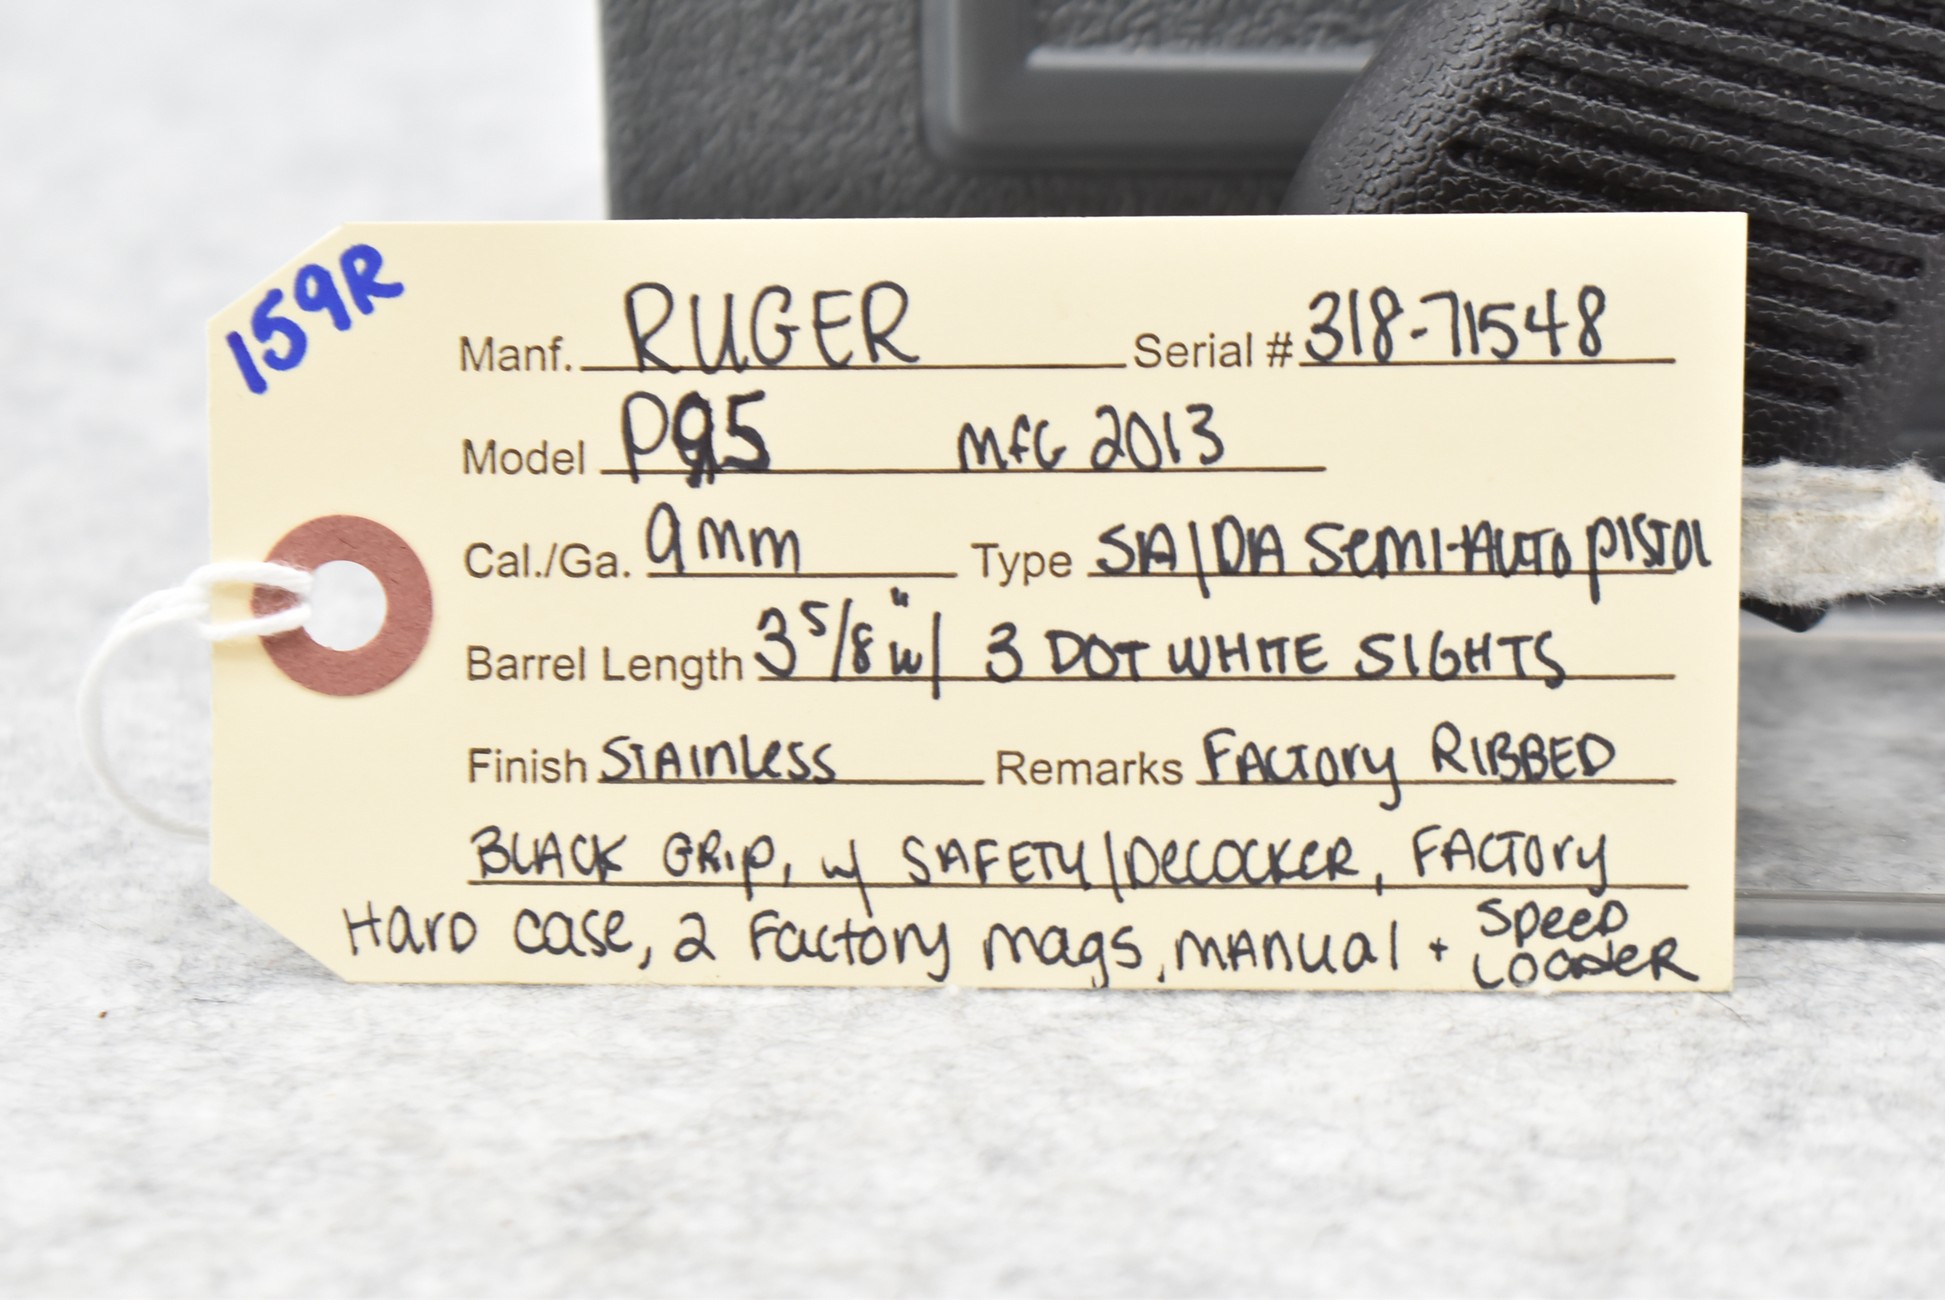 159R
Manf. RUGER Serial # 318-71548
Model P95 MFG 2013
Cal./Ga. 9mm Type SA/DA SEMI-AUTO PISTOL
Barrel Length 3 5/8" w/ 3 DOT WHITE SIGHTS
Finish STAINLESS Remarks FACTORY RIBBED
BLACK GRIP, w/ SAFETY/DECOCKER, FACTORY
HARD CASE, 2 FACTORY MAGS, MANUAL + SPEED
LOADER